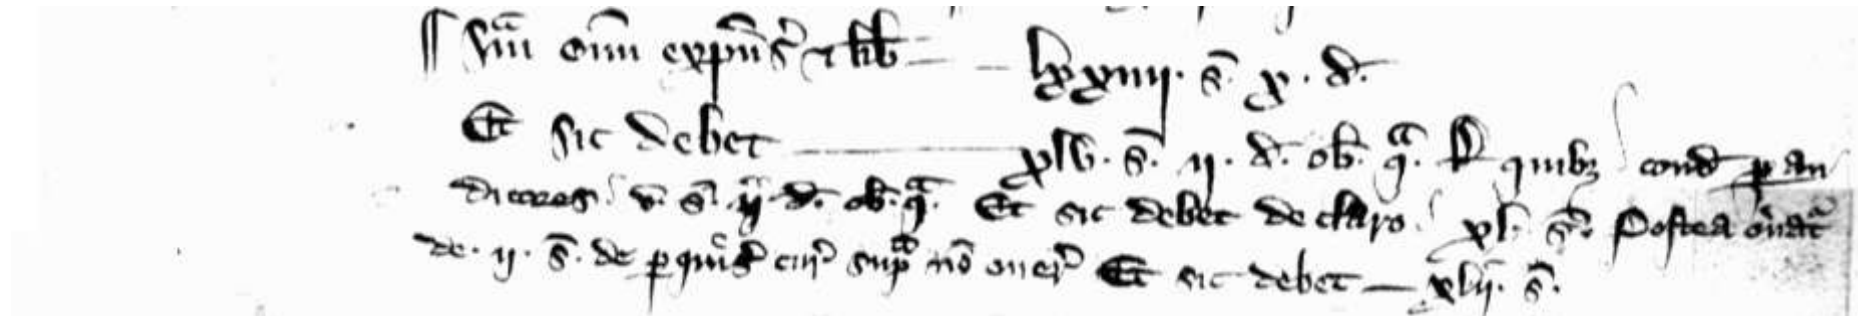 ¶ Sm̄a om̄ expn̄s̄ ⁊ lib̄ — lxxiiij. s̄. x. d̄.
Et sic debet — xlv. s̄. ij. d̄. ob̄. qᵃ. De quibȝ cond̄ p̱ au
ditores v. s̄. ij. d̄. ob̄. qᵃ. Et sic debet de claro xl. s̄. Postea on̄atᵉ
de. ij. s̄. de p̱quis̄ cur̄ supᵃ nō oner̄ Et sic debet — xlij. s̄.